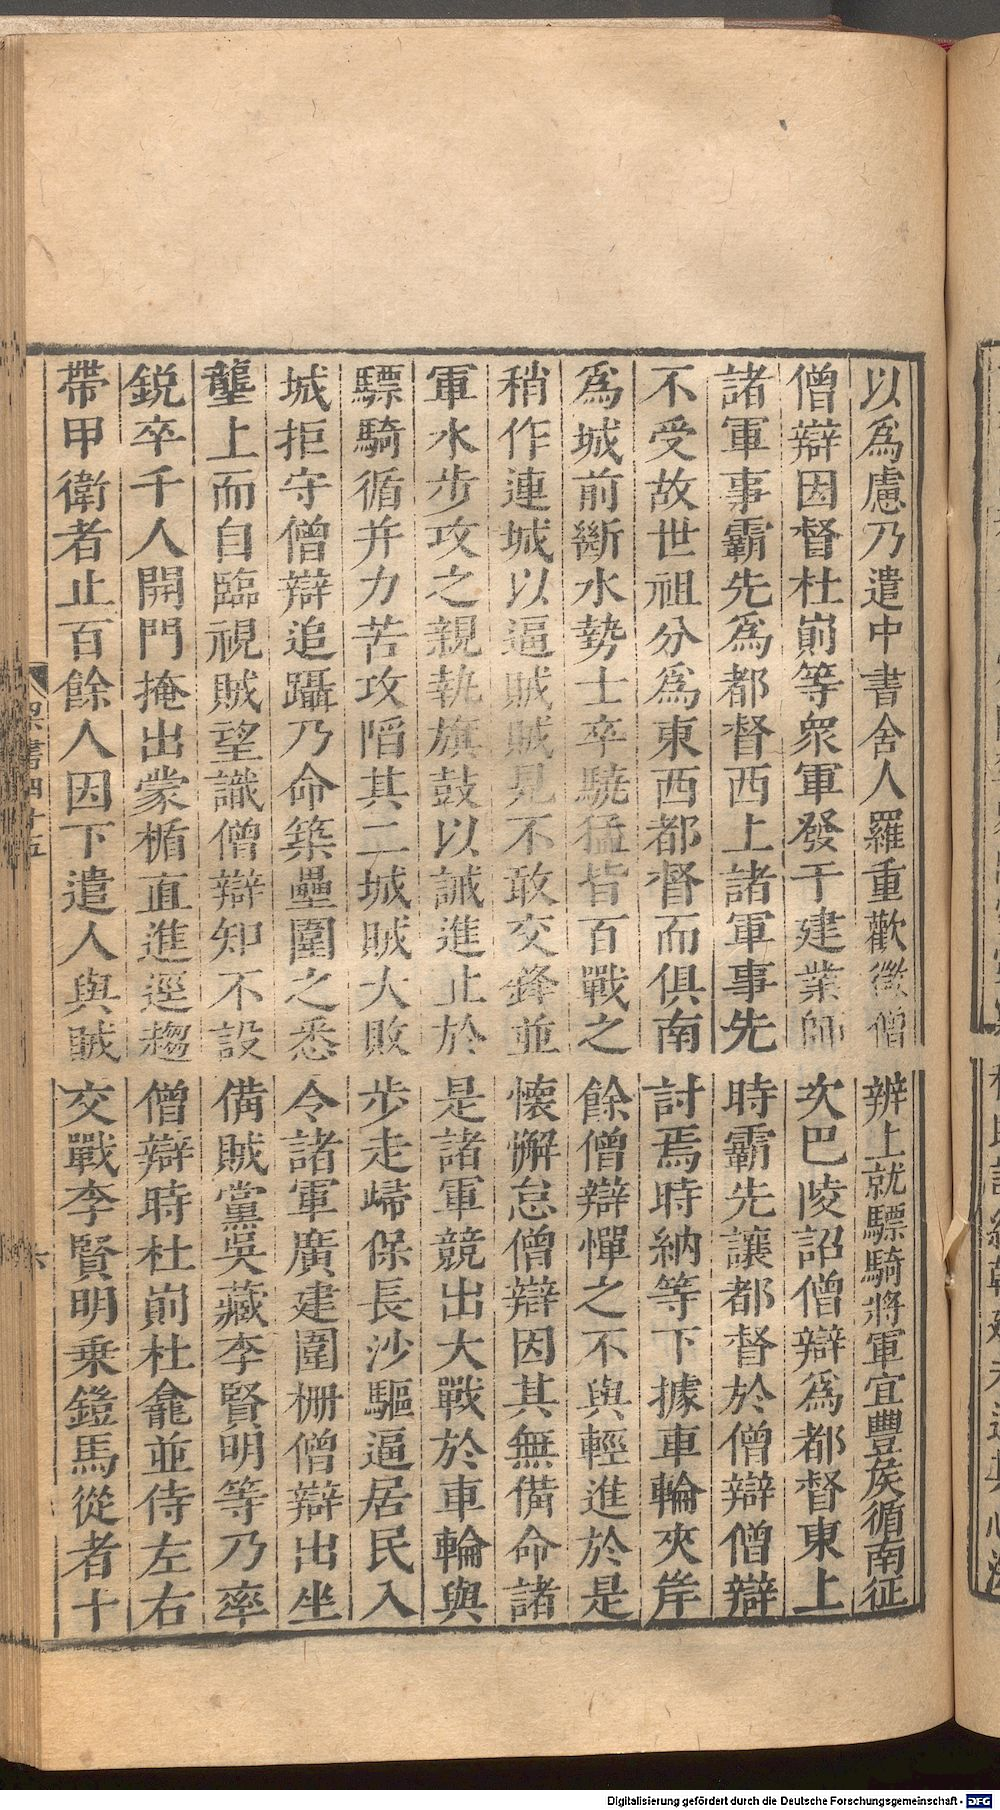 以爲慮乃遣中書舍人羅重歡徵僧辨上就驃騎將軍宜豐矦循南征
僧辯因督杜崱等衆軍發于建業師次巴陵詔僧辯爲都督東上
諸軍事霸先爲都督西上諸軍事先時霸先讓都督於僧辯僧辯
不受故世祖分爲東西都督而俱南討焉時納等下據車輪夾岸
爲城前斷水勢士卒驍猛皆百戰之餘僧辯憚之不與輕進於是
稍作連城以逼賊賊見不敢交鋒並懷懈怠僧辯因其無備命諸
軍水步攻之親執旗鼓以誡進止於是諸軍競出大戰於車輪與
驃騎循并力苦攻䧟其二城賊大敗步走歸保長沙驅逼居民入
城拒守僧辯追躡乃命築壘圍之悉令諸軍廣建圍柵僧辯出坐
壟上而自臨視賊望識僧辯知不設備賊黨吳藏李賢明等乃率
鋭卒千人開門掩出蒙楯直進逕趨僧辯時杜崱杜龕並侍左右
帶甲衛者止百餘人因下遣人與賊交戰李賢明乗鎧馬從者十
梁書四十五
六
Digitalisierung gefördert durch die Deutsche Forschungsgemeinschaft - DFG